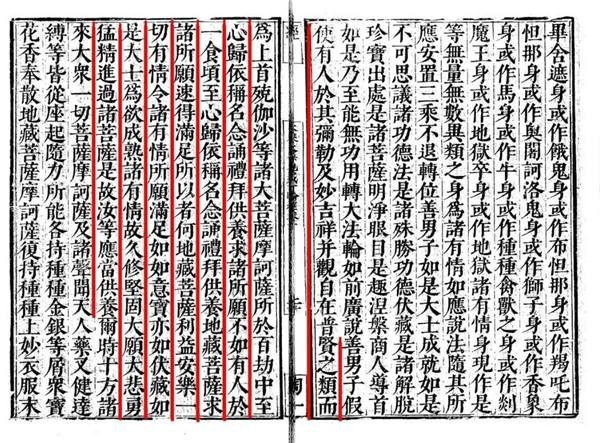 畢舍遮身或作餓鬼身或作布怛那身或作羯吒布
怛那身或作奧闍訶洛鬼身或作師子身或作香象
身或作馬身或作牛身或作種種禽獸之身或作剡
魔王身或作地獄卒身或作地獄諸有情身現作是
等無量無數異類之身為諸有情如應說法隨其所
應安置三乘不退轉位善男子如是大士成就如是
不可思議諸功德法是諸殊勝功德伏藏是諸解脫
珍寶出處是諸菩薩明淨眼目是趣涅槃商人導首
如是乃至能無功用轉大法輪如前廣說善男子假
使有人於其彌勒及妙吉祥并觀自在普賢之類而
為上首殑伽沙等諸大菩薩摩訶薩所於百劫中至
心歸依稱名念誦禮拜供養求諸所願不如有人於
一食頃至心歸依稱名念誦禮拜供養地藏菩薩求
諸所願速得滿足所以者何地藏菩薩利益安樂一
切有情令諸有情所願滿足如如意寶亦如伏藏如
是大士為欲成熟諸有情故久修堅固大願大悲勇
猛精進過諸菩薩是故汝等應當供養爾時十方諸
來大衆一切菩薩摩訶薩及諸聲聞天人藥叉健達
縛等皆從座起隨力所能各持種種金銀等屑衆寶
花香奉散地藏菩薩摩訶薩復持種種上妙衣服末